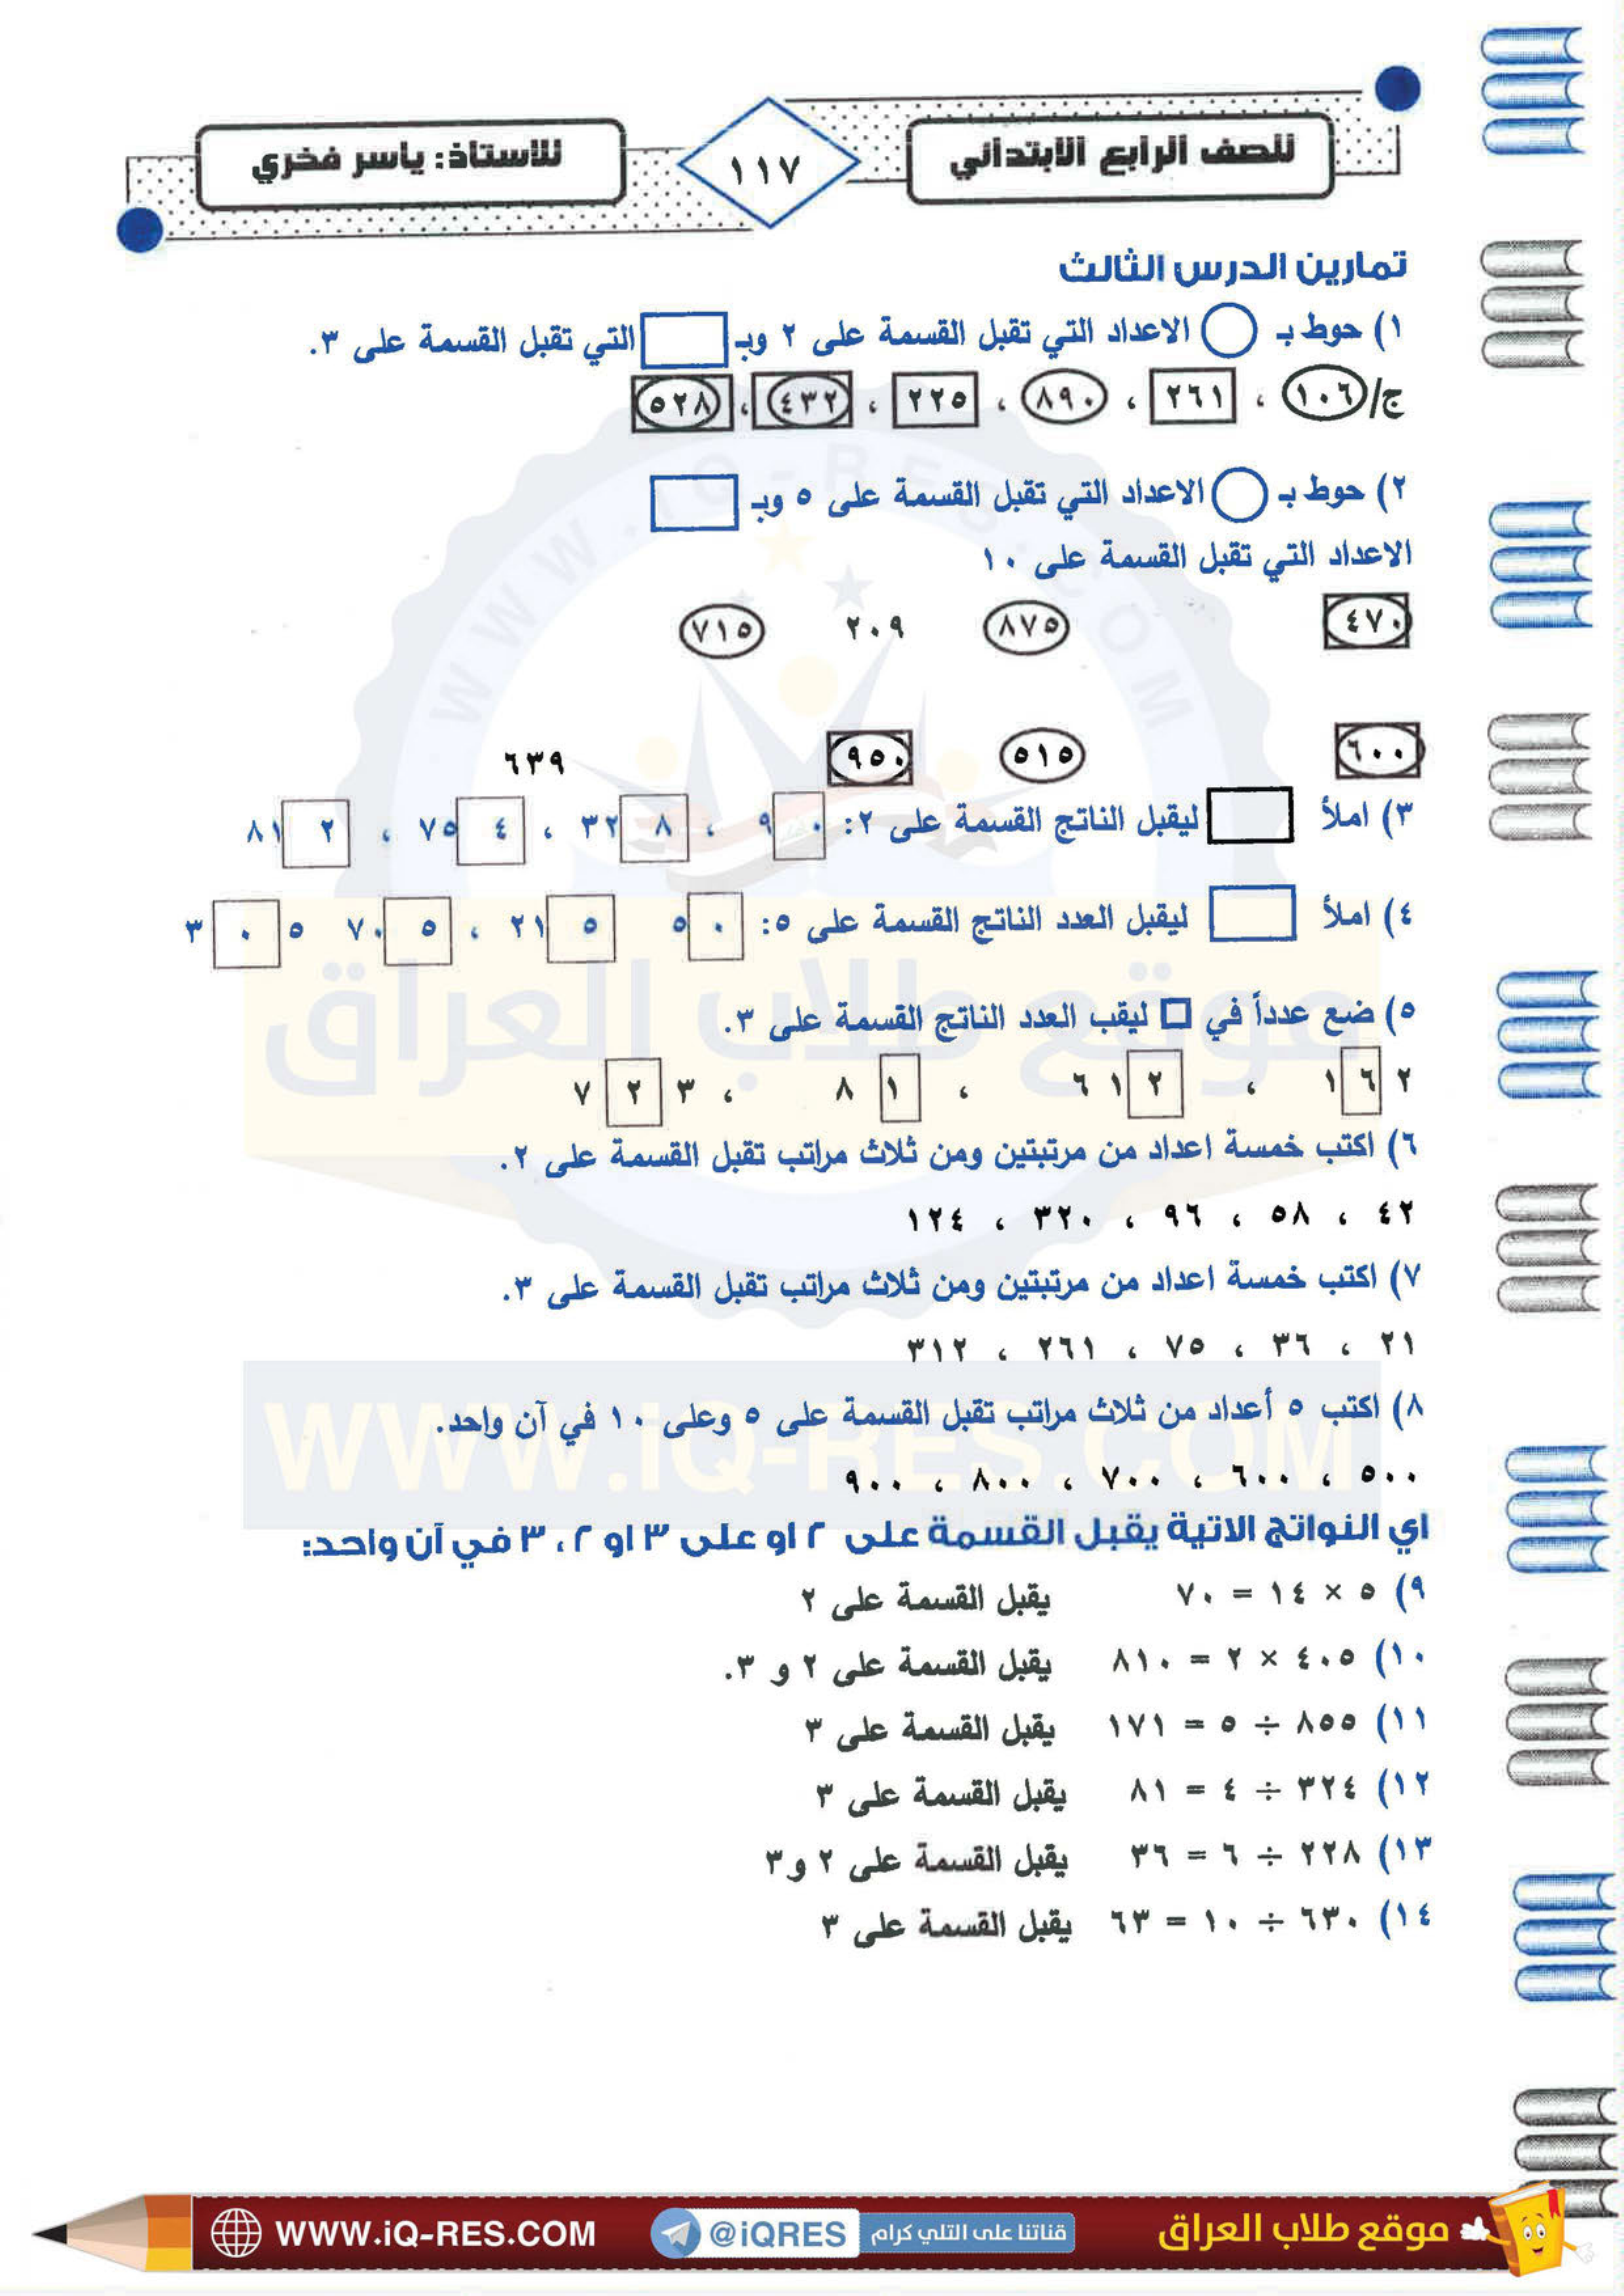 للصف الرابع الابتدائي
١١٧
للاستاذ: ياسر فخري
تمارين الدرس الثالث
١) حوط بـ الاعداد التي تقبل القسمة على ٢ وبـ التي تقبل القسمة على ٣.
ج/ ١٠٦ ، ٢٦١ ، ٨٩٠ ، ٢٢٥ ، ٤٣٢ ، ٥٢٨
٢) حوط بـ الاعداد التي تقبل القسمة على ٥ وبـ
الاعداد التي تقبل القسمة على ١٠
٤٧٠ ٨٧٥ ٢٠٩ ٧١٥
٦٠٠ ٥١٥ ٩٥٠ ٦٣٩
٣) املأ ليقبل الناتج القسمة على ٢: ٩٠ ، ٣٢٨ ، ٧٥٤ ، ٨١٢
٤) املأ ليقبل العدد الناتج القسمة على ٥: ٥٠ ٢١٥ ، ٧٠٥ ٣٠٥
٥) ضع عدداً في ليقب العدد الناتج القسمة على ٣.
١٦٢ ، ٦١٢ ، ٨١ ، ٧٢٣
٦) اكتب خمسة اعداد من مرتبتين ومن ثلاث مراتب تقبل القسمة على ٢.
٤٢ ، ٥٨ ، ٩٦ ، ٣٢٠ ، ١٢٤
٧) اكتب خمسة اعداد من مرتبتين ومن ثلاث مراتب تقبل القسمة على ٣.
٢١ ، ٣٦ ، ٧٥ ، ٢٦١ ، ٣١٢
٨) اكتب ٥ أعداد من ثلاث مراتب تقبل القسمة على ٥ وعلى ١٠ في آن واحد.
٥٠٠ ، ٦٠٠ ، ٧٠٠ ، ٨٠٠ ، ٩٠٠
اي النواتج الاتية يقبل القسمة على ٢ او على ٣ او ٢ ، ٣ في آن واحد:
٩) ٥ × ١٤ = ٧٠ يقبل القسمة على ٢
١٠) ٤٠٥ × ٢ = ٨١٠ يقبل القسمة على ٢ و ٣.
١١) ٨٥٥ ÷ ٥ = ١٧١ يقبل القسمة على ٣
١٢) ٣٢٤ ÷ ٤ = ٨١ يقبل القسمة على ٣
١٣) ٢٢٨ ÷ ٦ = ٣٦ يقبل القسمة على ٢ و ٣
١٤) ٦٣٠ ÷ ١٠ = ٦٣ يقبل القسمة على ٣
WWW.iQ-RES.COM
موقع طلاب العراق
WWW.iQ-RES.COM
موقع طلاب العراق
قناتنا على التلي كرام
@iQRES
WWW.iQ-RES.COM